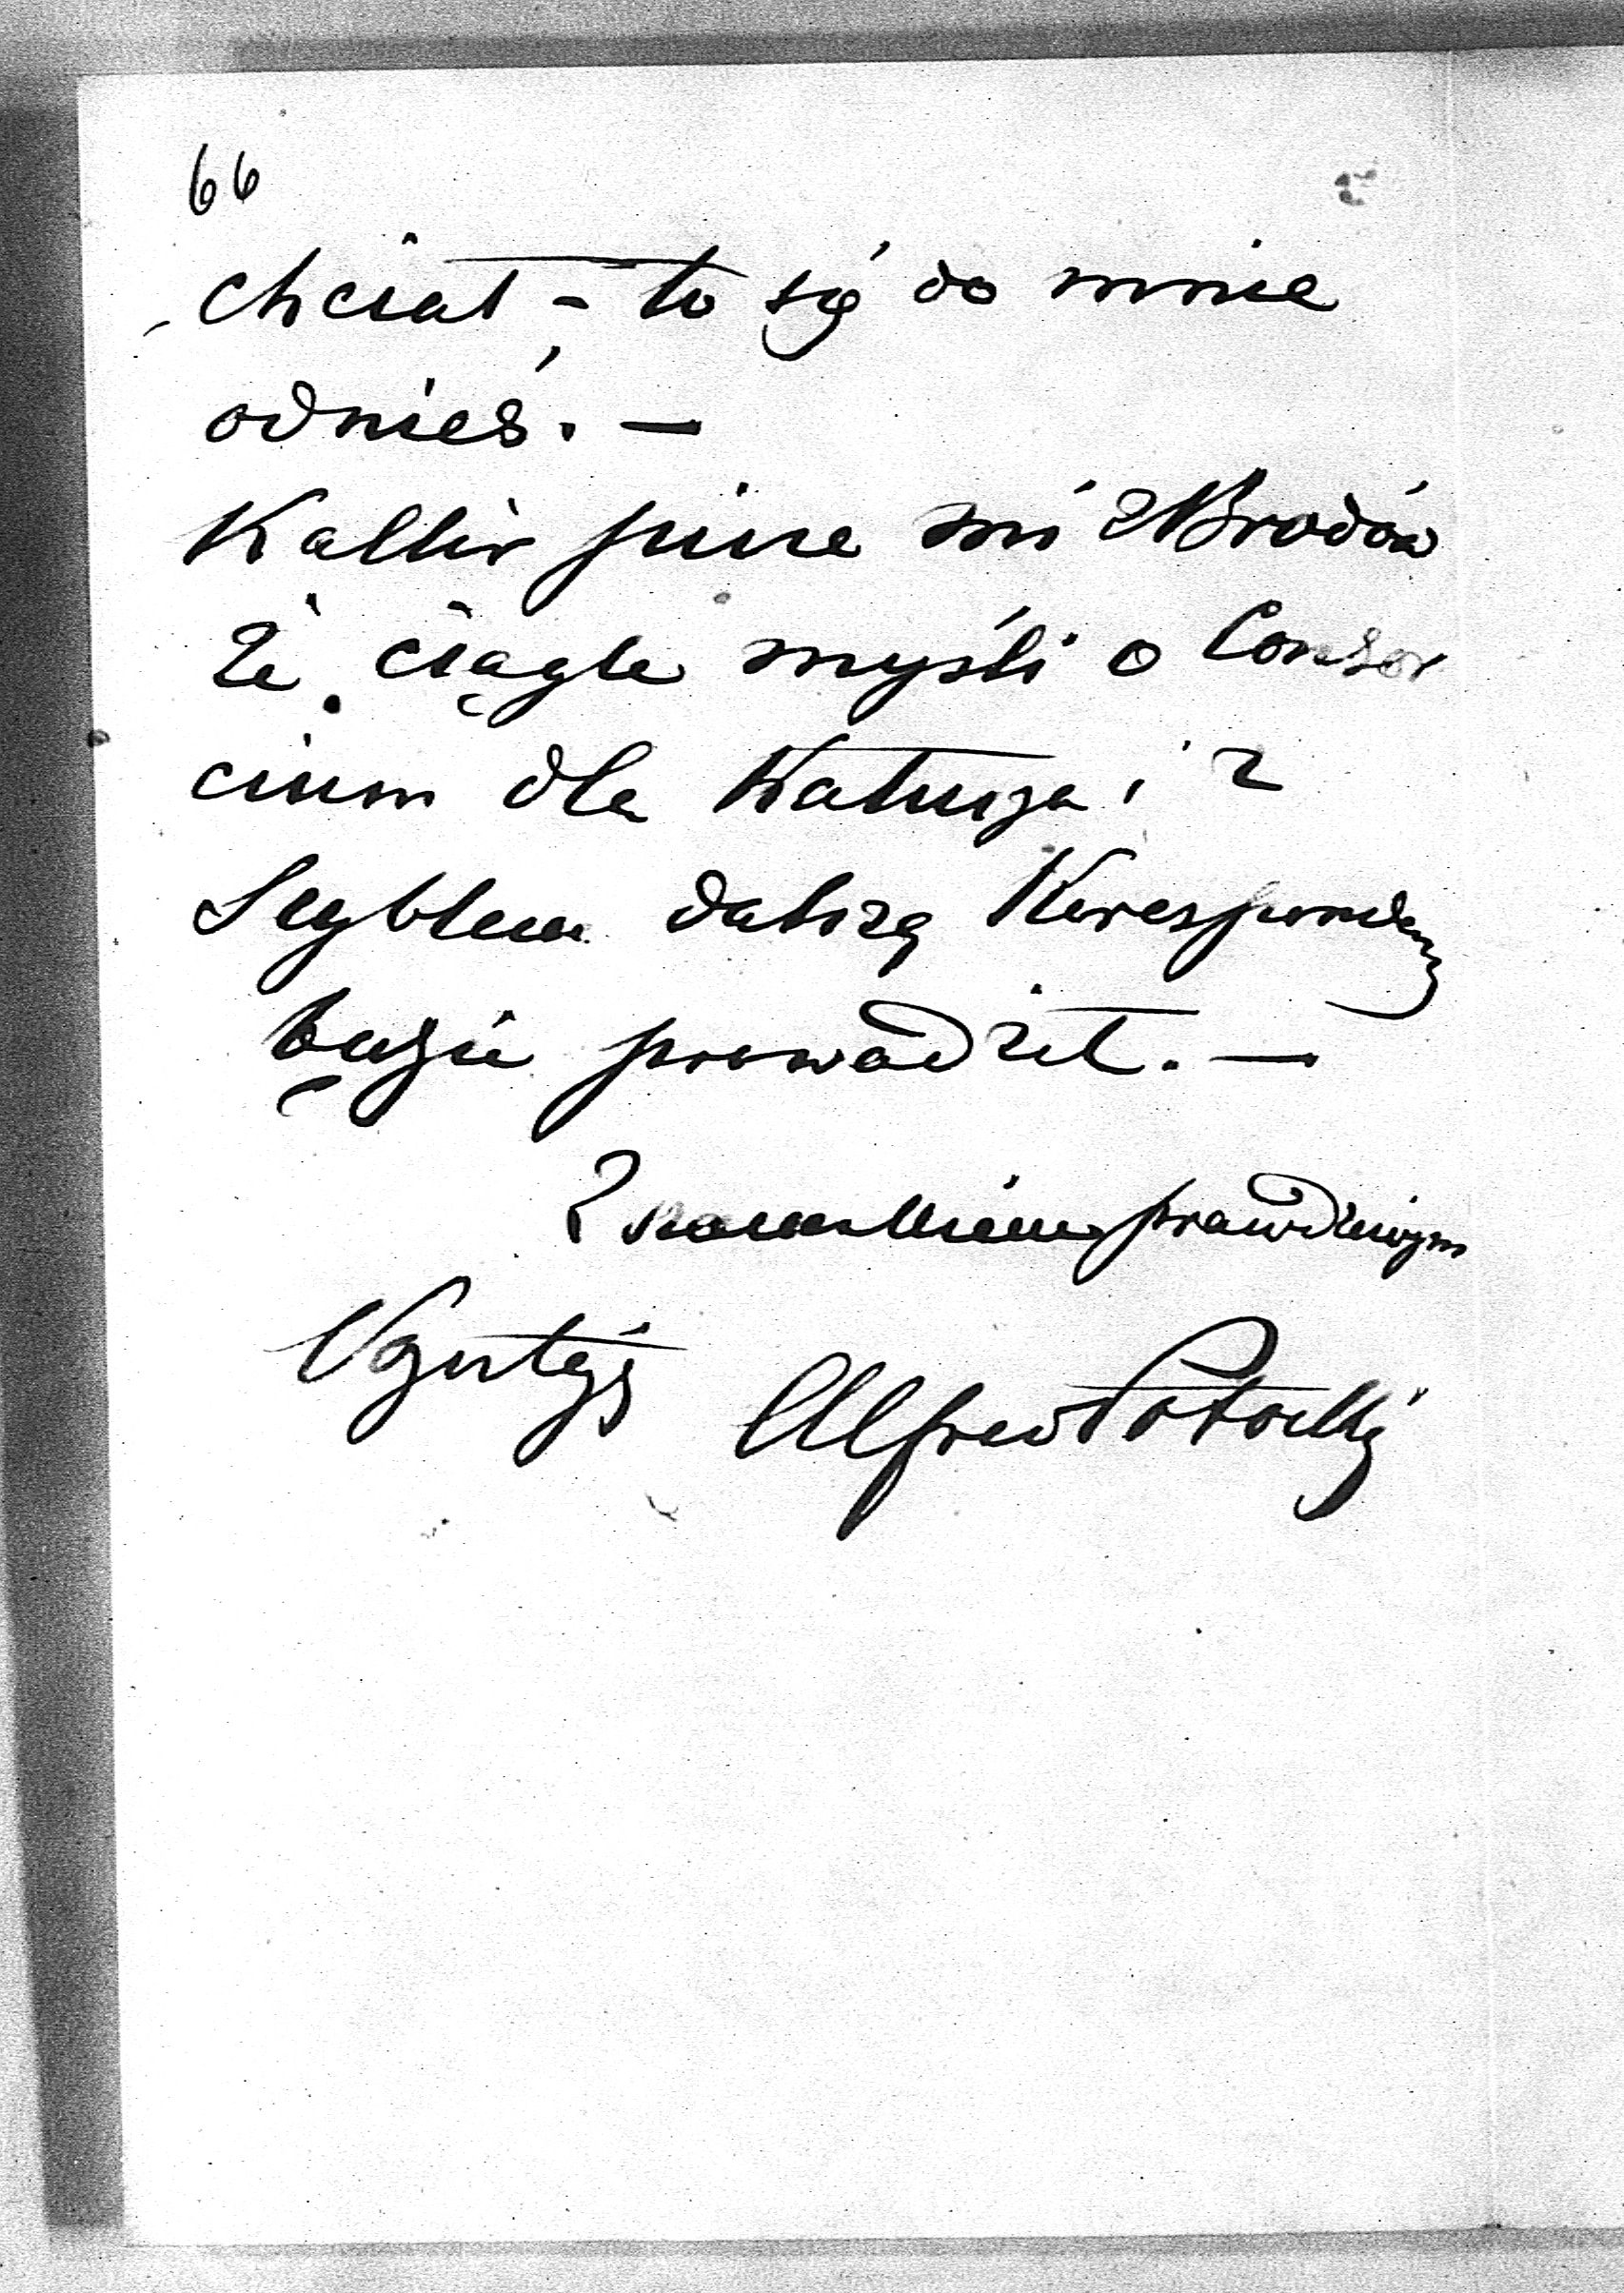 66
chciał – to się do mnie
odnieś. —
Kallir pisze mi z Brodów
że ciągle myśli o Consor
cium dla Kałusza i z
Seyblem dalszą Korespondencyę
będzie prowadził. —
Z szacunkiem prawdziwym
Życzliwy Alfred Potocki